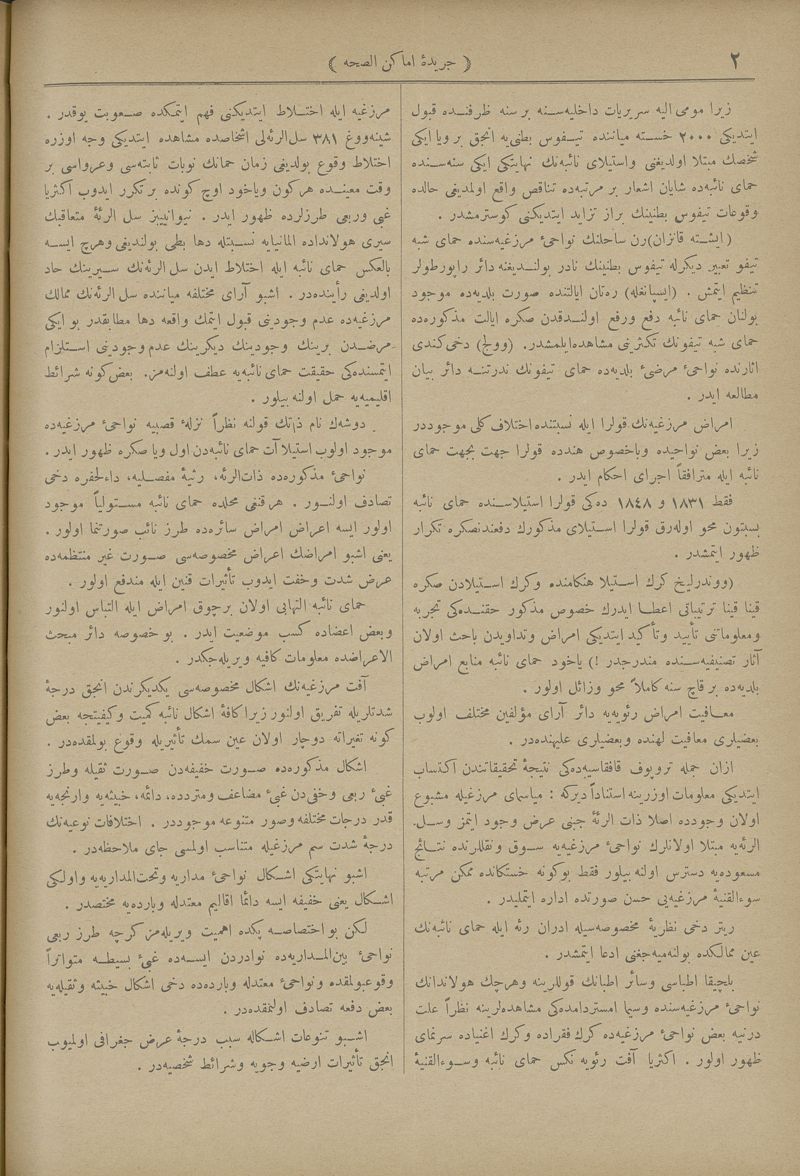 ٢
﴿ جريدۀ اماكن الصحه ﴾
زيرا مومى اليه سريريات داخليه‌سنه بر سنه ظرفنده قبول
ايتديكى ٢٠٠٠ خسته مياننده تيفوس بطنى‌يه انجق بر ويا ايكى
شخصك مبتلا اولديغنى واستيلاى نائبه‌نك نهايتكى ايكى سنه‌سنده
حماى نائبه‌ده شايان اشعار بر مرتبه‌ده تناقص واقع اولمديغى حالده
وقوعات تيفوس بطنينك براز تزايد ايتديكنى كوسترمشدر .
(ايشته قانزان) رن ساحلنك نواحئ مرزغيه‌سنده حماى شبه
تيفو تعبير ديكرله تيفوس بطنينك نادر بولنديغنه دائر راپورطولر
تنظيم ايتمش . (ايسپانغله) ره‌تان ايالتنده صورت بلديه‌ده موجود
بولنان حماى نائبه دفع ورفع اولندقدن صكره ايالت مذكوره‌ده
حماى شبه تيفونك تكثرينى مشاهده‌ايلمشدر. (وولج) دخى كندى
اثارنده نواحئ مرضئ بلديه‌ده حماى تيفونك ندرتنه دائر بيان
مطالعه ايدر .
امراض مرزغيه‌نك قولرا ايله نسبتنده اختلاف كلى موجوددر
زيرا بعض نواحيده وباخصوص هندده قولرا جهت بجهت حماى
نائبه ايله مترافقاً اجراى احكام ايدر .
فقط ١٨٣١ و ١٨٤٨ ده‌كى قولرا استيلاسنده حماى نائبه
بسبتون محو اوله‌رق قولرا استيلاى مذكورك دفعندنصكره تكرار
ظهور ايتمشدر .
(ووندرليخ كرك استيلا هنكامنده وكرك استيلادن صكره
قينا قينا ترتيباتى اعطا ايدرك خصوص مذكور حقنده‌كى تجربه
ومعلوماتنى تأييد وتأكيد ايتديكى امراض وتداويدن باحث اولان
آثار تصنيفيه‌سنده مندرجدر !) ياخود حماى نائبه منابع امراض
بلديه‌ده بر قاچ سنه كاملاً محو وزائل اولور .
معافيت امراض رئويه‌يه دائر آراى مؤلفين مختلف اولوب
بعضيلرى معافيت لهنده وبعضيلرى عليهنده‌در .
ازان جمله تروپوف قافقاسيه‌ده‌كى نتيجۀ تحقيقاتندن اكتساب
ايتديكى معلومات اوزرينه استناداً ديركه : مياسماى مرزغيله مشبوع
اولان وجودده اصلا ذات الرئۀ جبنى عرض وجود ايتمز وسل
الرئه‌يه مبتلا اولانلرك نواحئ مرزغيه‌يه سوق ونقللرنده نتائج
مسعوده‌يه دسترس اولنه بيلور فقط بوكونه خستكانده ممكن مرتبه
سوءالقنيۀ مرزغيه‌يى حسن صورتده اداره ايتمليدر .
ريتر دخى نظريۀ مخصوصه‌سيله ادران رئه ايله حماى نائبه‌نك
عين ممالكده بولنه‌ميه‌جغنى ادعا ايتمشدر .
بلچيقا اطباسى وسائر اطبانك قوللرينه وهرچك هولاندانك
نواحئ مرزغيه‌سنده وسيما امستردامده‌كى مشاهده‌لرينه نظراً علت
درنيه بعض نواحئ مرزغيه‌ده كرك فقراده وكرك اغنياده سرنماى
ظهور اولور . اكثريا آفت رئويه نكس حماى نائبه وسوءالقنيۀ
مرزغيه ايله اختلاط ايتديكنى فهم ايتمكده صعوبت يوقدر .
شينه‌ووغ ٣٨١ سل الرئه‌لى اشخاصده مشاهده ايتديكى وجه اوزره
اختلاط وقوع بولديغى زمان حمانك نوبات ثابته‌سى وعرواسى بر
وقت معينده هركون وياخود اوچ كونده بر تكرر ايدوب اكثريا
غبى وربعى طرزلرده ظهور ايدر . نيواپييز سل الرئۀ متعاقبك
سيرى هولانداده المانيايه نسبتله دها بطى بولنديغنى وهرچ ايسه
بالعكس حماى نائبه ايله اختلاط ايدن سل الرئه‌نك سيرينك حاد
اولديغى رأينده‌در . اشبو آراى مختلفه مياننده سل الرئه‌نك ممالك
مرزغيه‌ده عدم وجودينى قبول ايتمك واقعه دها مطابقدر بو ايكى
مرضدن برينك وجودينك ديكرينك عدم وجودينى استلزام
ايتمسنده‌كى حقيقت حماى نائبه‌يه عطف اولنه‌مز. بعض كونه شرائط
اقليميه‌يه حمل اولنه بيلور .
دوشه‌ك نام ذاتك قولنه نظراً نزلۀ قصبيه نواحئ مرزغيه‌ده
موجود اولوب استيلاآت حماى نائبه‌دن اول ويا صكره ظهور ايدر .
نواحئ مذكوره‌ده ذات‌الرئه، رئيۀ مفصليه، داءالحفره دخى
تصادف اولنور . هر قنغى محلده حماى نائبه مستولياً موجود
اولور ايسه اعراض امراض سائره‌ده طرز نائب صورتنما اولور .
يعنى اشبو امراضك اعراض مخصوصه‌سى صورت غير منتظمه‌ده
عرض شدت وخفت ايدوب تأثيرات قنين ايله مندفع اولور .
حماى نائبه التهابى اولان برچوق امراض ايله التباس اولنور
وبعض اعضاده كسب موضعيت ايدر . بو خصوصه دائر مبحث
الاعراضده معلومات كافيه ويريله‌جكدر .
آفت مرزغيه‌نك اشكال مخصوصه‌سى يكديكرندن انجق درجۀ
شدتلريله تفريق اولنور زيرا كافۀ اشكال نائبه كميت وكيفيتجه بعض
كونه تغيراته دوچار اولان عين سمك تأثيريله وقوع بولمقده‌در .
اشكال مذكوره‌ده صورت خفيفه‌دن صورت ثقيله وطرز
غبئ ربعى وخفى‌دن غبئ مضاعف ومتردده، دائمه، خبيثه‌يه وارنجه‌يه
قدر درجات مختلفه وصور متنوعه موجوددر . اختلافات نوعيه‌نك
درجۀ شدت سم مرزغيله متناسب اولمسى جاى ملاحظه‌در .
اشبو نهايتكى اشكال نواحئ مداريه وتحت‌المداريه‌يه واولكى
اشكال يعنى خفيفه ايسه دائما اقاليم معتدله وبارده‌يه مختصدر .
لكن بو اختصاصه پكده اهميت ويريله‌مز كرچه طرز ربعى
نواحئ بين‌المداريه‌ده نوادردن ايسه‌ده غبئ بسيطه متواتراً
وقوعبولمقده ونواحئ معتدله وبارده‌ده دخى اشكال خبيثه وثقيله‌يه
بعض دفعه تصادف اولنمقده‌در .
اشبو تنوعات اشكاله سبب درجۀ عرض جغرافى اولميوب
انجق تأثيرات ارضيه وجويه وشرائط شخصيه‌در .